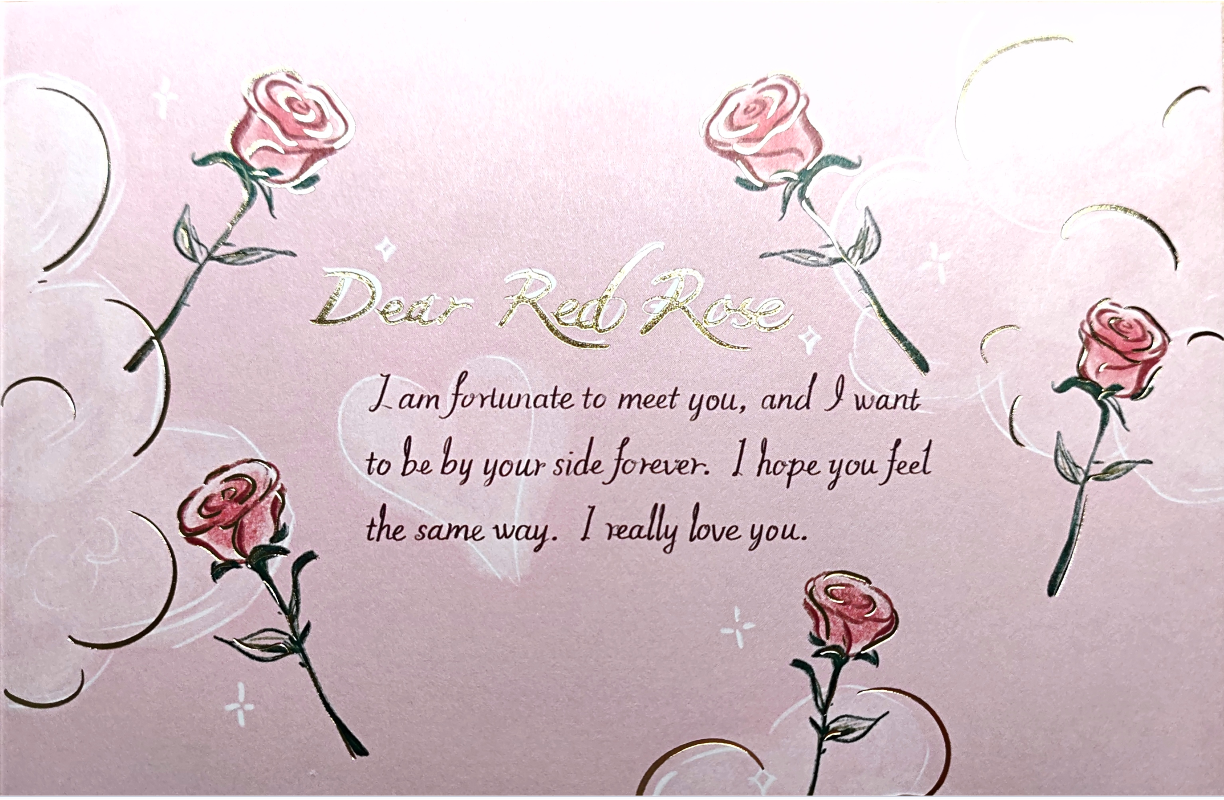 Dear Red Rose
I am fortunate to meet you, and I want
to be by your side forever. I hope you feel
the same way. I really love you.